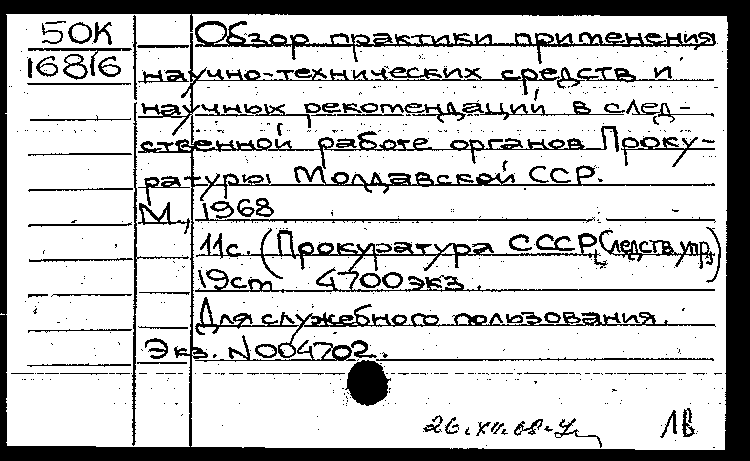 50К Обзор практики применения
16816 научно-технических средств и
научных рекомендаций в след-
ственной работе органов Проку-
ратуры Молдавской ССР.
М., 1968
11с. (Прокуратура СССР. Следств. упр.)
19см 4700экз.
Для служебного пользования.
Экз. N004702.
26.XII.68.
1В